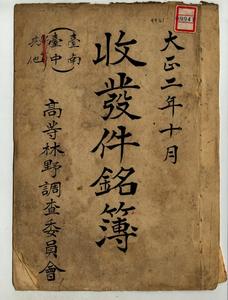 大正二年十月
收發件銘簿
臺南
臺中
其他
高等林野調查委員會